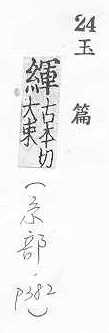 24 玉篇
緷 古本切
大束
(糸部, p382)